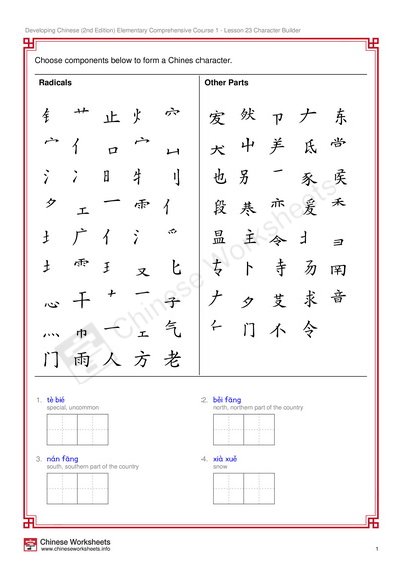 Developing Chinese (2nd Edition) Elementary Comprehensive Course 1 - Lesson 23 Character Builder
Choose components below to form a Chines character.
Radicals
Other Parts
钅 艹 止 火 穴
宀 亻 口 宀 凵
氵 冫 日 牜 刂
夕 工 一 雨 亻
土 广 亻 氵
土 雨 王 又 匕
心 干 十 一 子
灬 巾 一 工 气
门 雨 人 方 老
然 卩 东
犬 羊 氐
也 另 冖 豕 侯
段 亦 爰
昷 主 令 彐
卜 寺
夕 求 音
𠂉 门 不 令
Chinese Worksheets
1. tè bié
special, uncommon
2. běi fāng
north, northern part of the country
3. nán fāng
south, southern part of the country
4. xià xuě
snow
Chinese Worksheets
www.chineseworksheets.info
1